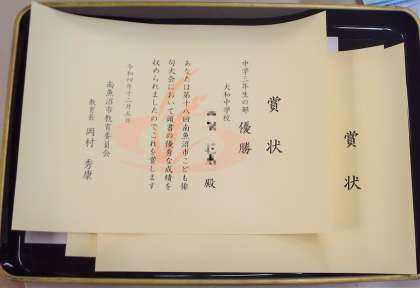 賞状
中学三年生の部 優勝
大和中学校
殿
あなたは第十八回南魚沼市こども俳
句大会において頭書の優秀な成績を
収められましたのでこれを賞します
令和四年十二月五日
南魚沼市教育委員会
教育長 岡村 秀康
賞状